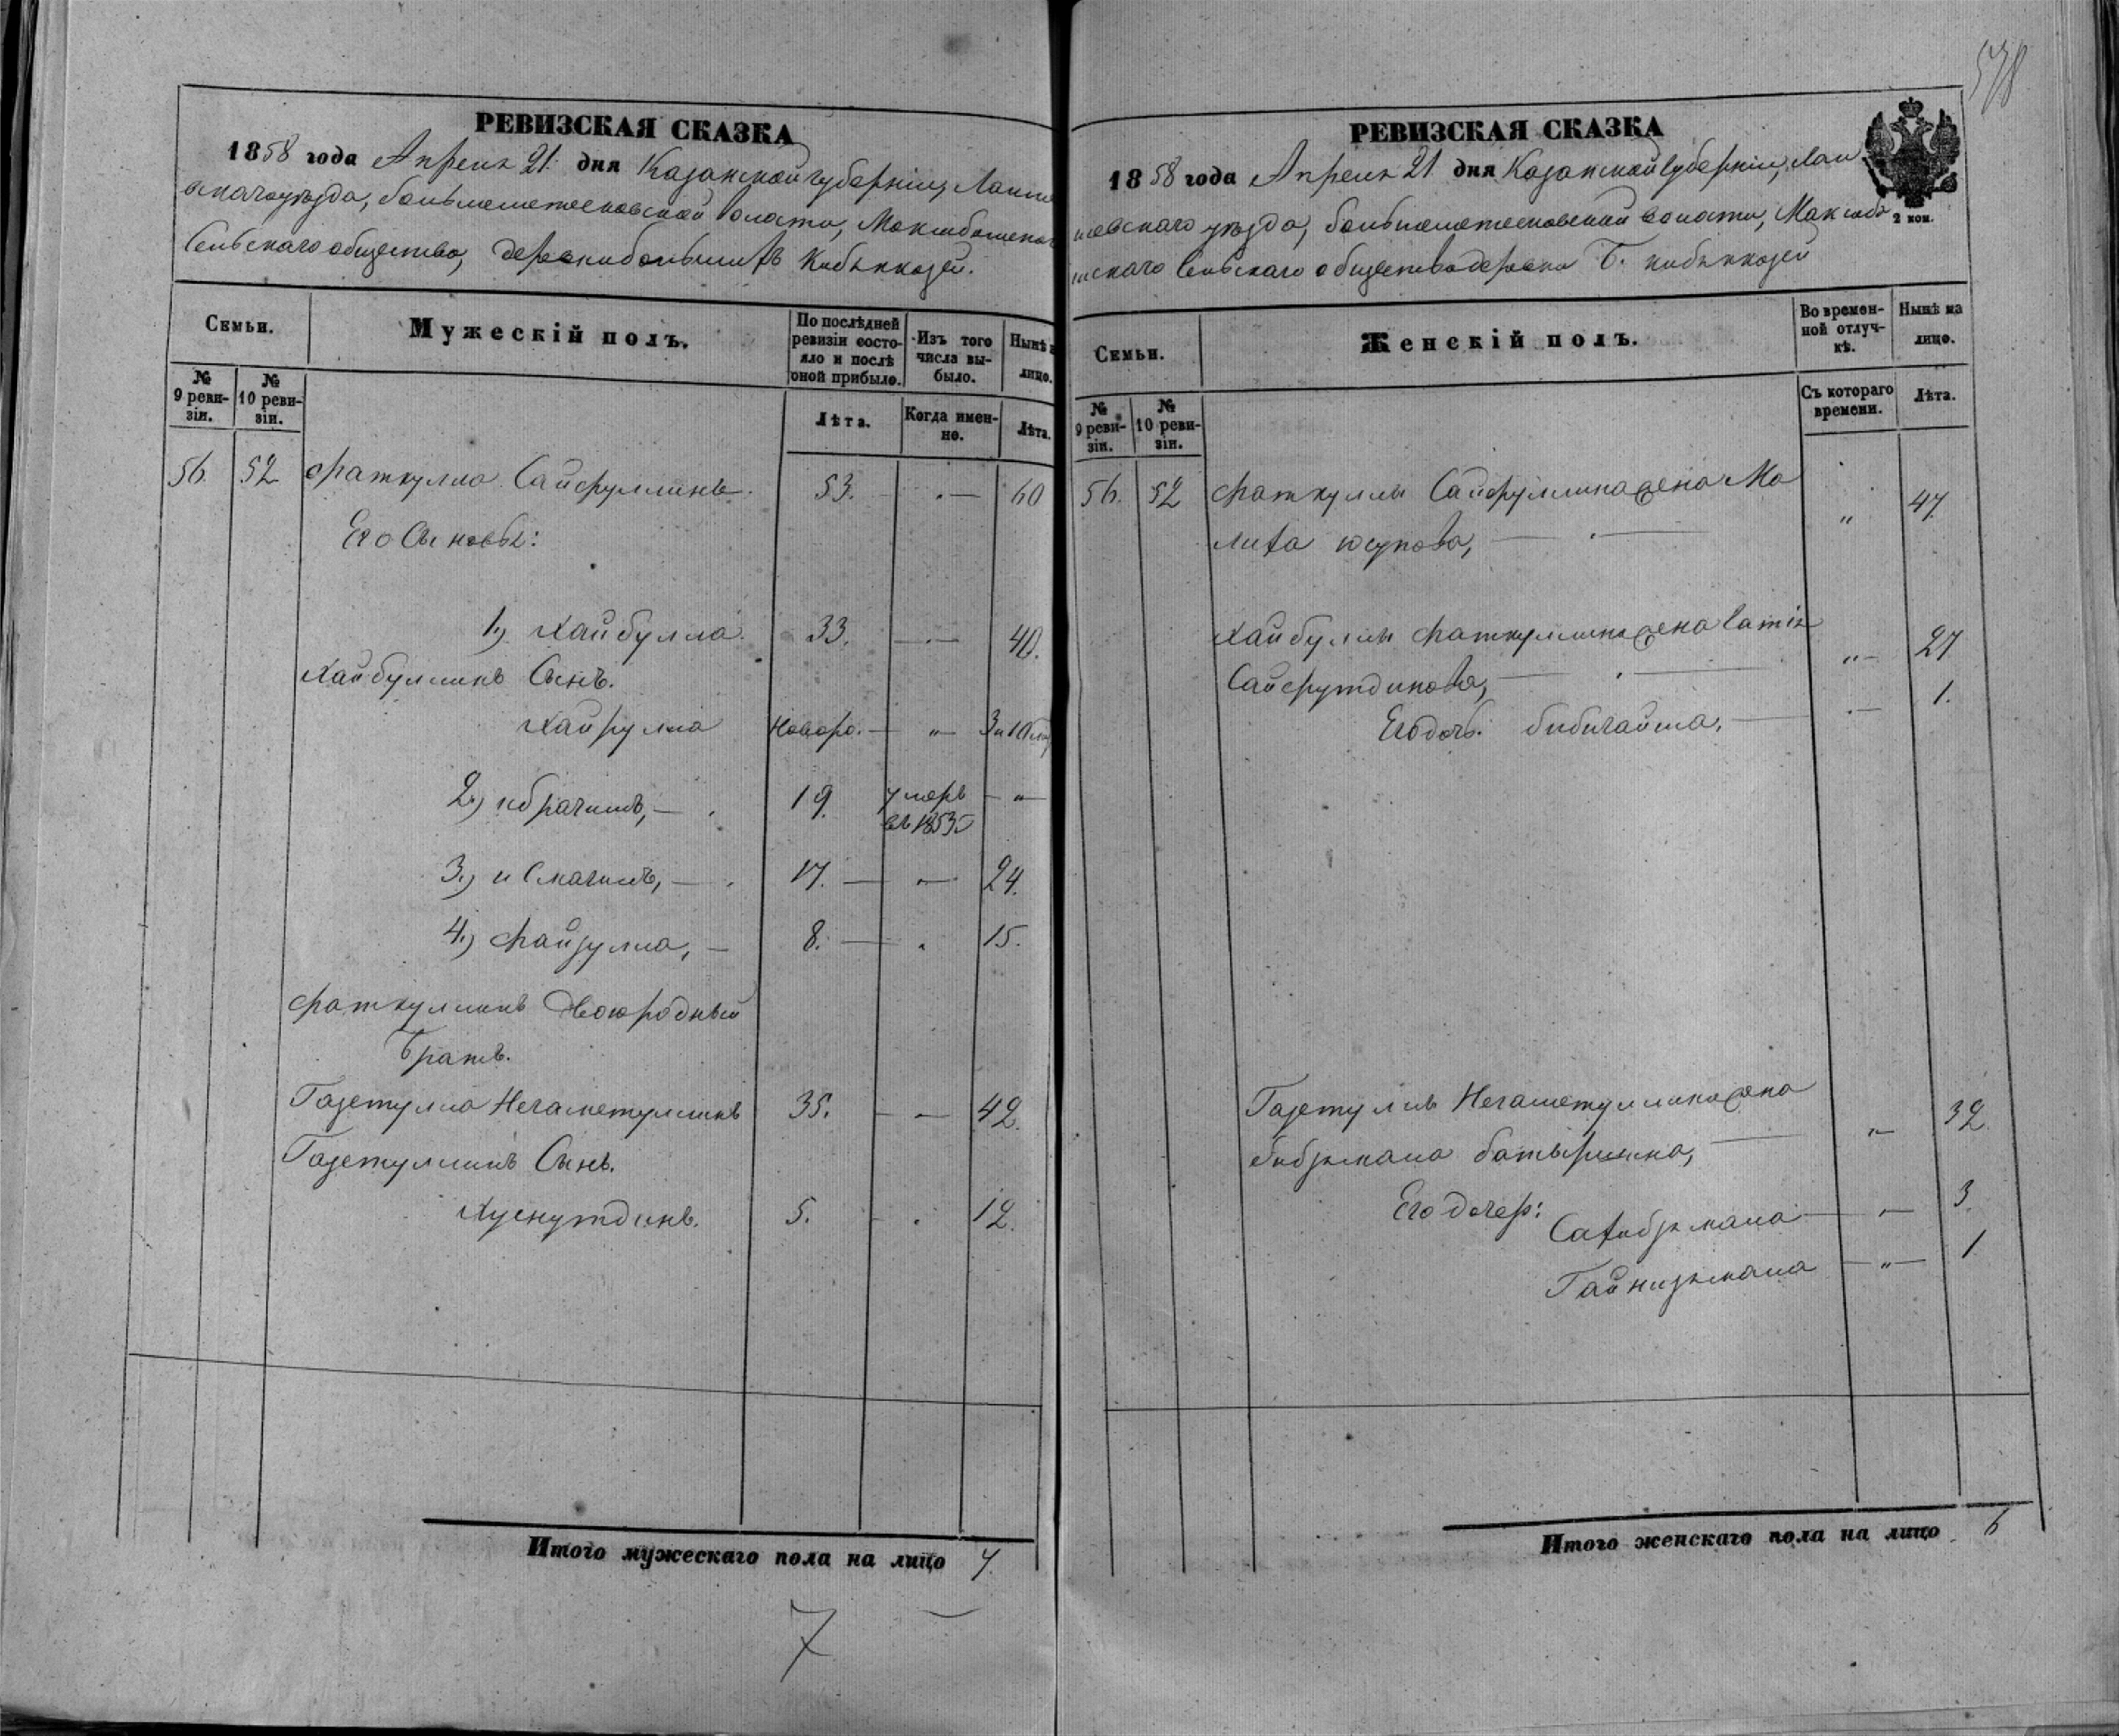 578
РЕВИЗСКАЯ СКАЗКА
1858 года Апреля 21 дня Казанской губернiи, Лаише
вскаго уѣзда, большеметесковской волости, Макшабашска
Сельскаго общества, деревни большихъ Кибяккозей.
Семьи.
Мужескiй полъ.
По послѣдней ревизiи состояло и послѣ оной прибыло.
Изъ того числа выбыло.
Нынѣ на лицо.
№ 9 ревизiи.
№ 10 ревизiи.
Лѣта.
Когда именно.
Лѣта.
56. 52 Фаткулла Сайфуллинъ. 53. 60
Его Сыновья:
1.) Хайбулла. 33. 40.
Хайбуллинъ Сынъ.
Хайрулла Новоро. „ 3 и 10 м
2.) ибрагимъ, 19. умеръ въ 1853 „
3.) исмагилъ, 17. 24.
4.) Файзулла, 8. 15.
Фаткуллинъ двоюродный
Братъ.
Газетулла Негаметуллинъ 35. 42.
Газетуллинъ Сынъ.
Хуснутдинъ. 5. 12.
Итого мужескаго пола на лицо 7.
7
РЕВИЗСКАЯ СКАЗКА
1858 года Апреля 21 дня Казанской губернiи, Лаи
шевскаго уѣзда, большеметесковской волости, Макшаба
шскаго Сельскаго общества деревни Б. кибяккозей
2 коп.
Семьи.
Женскiй полъ.
Во временной отлучкѣ.
Нынѣ на лицо.
№ 9 ревизiи.
№ 10 ревизiи.
Съ котораго времени.
Лѣта.
56. 52 Фаткуллы Сайфуллина жена Ма
лифа юсупова, „ 47.
Хайбуллы Фаткуллина жена
Сайфутдинова, „ 27
Его дочь: бибигайша, 1.
Газетуллы Негаметуллина жена
бибзямала батыршина, „ 32.
Его дочер: Сахибзямала 3.
Гайнизямала „ 1
Итого женскаго пола на лицо 6